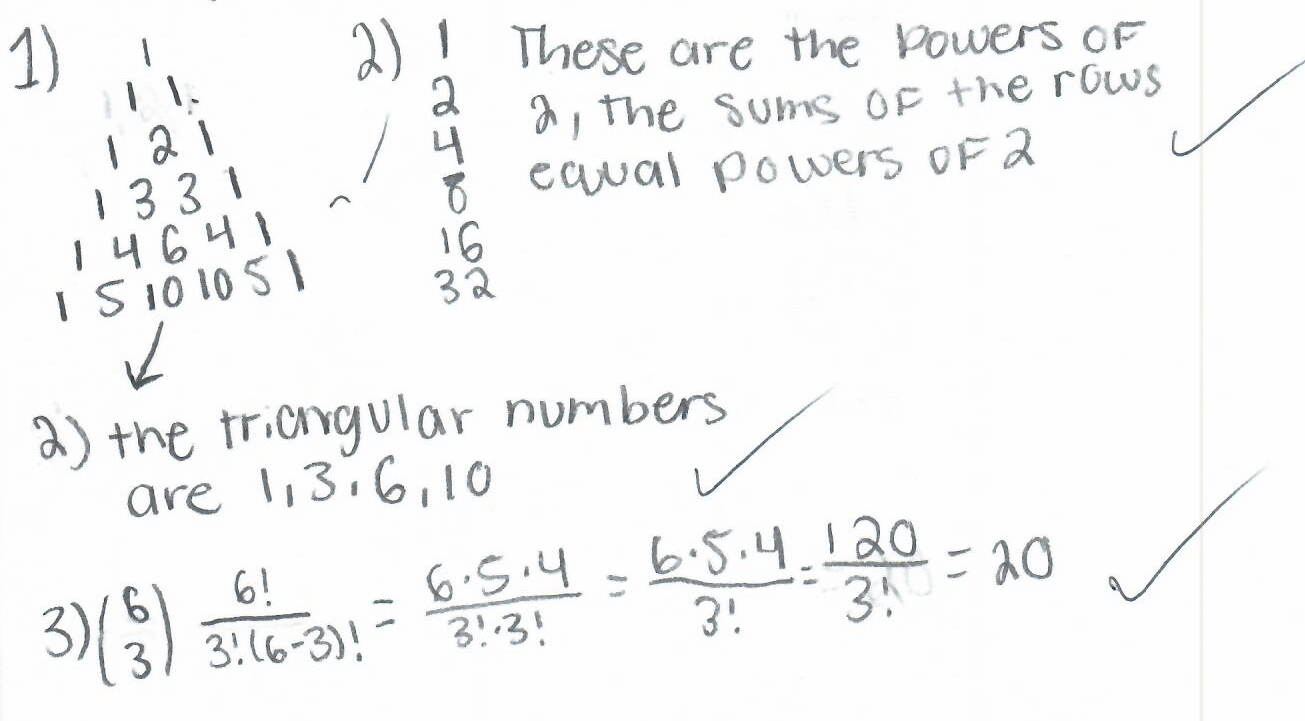 1)
1
1 1
1 2 1
1 3 3 1
1 4 6 4 1
1 5 10 10 5 1
2) 1
2
4
8
16
32
These are the powers of
2, the sums of the rows
equal powers of 2
2) the triangular numbers
are 1, 3, 6, 10
3) (6 3) 6!/3!(6-3)! = 6·5·4/3!·3! = 6·5·4/3! = 120/3! = 20